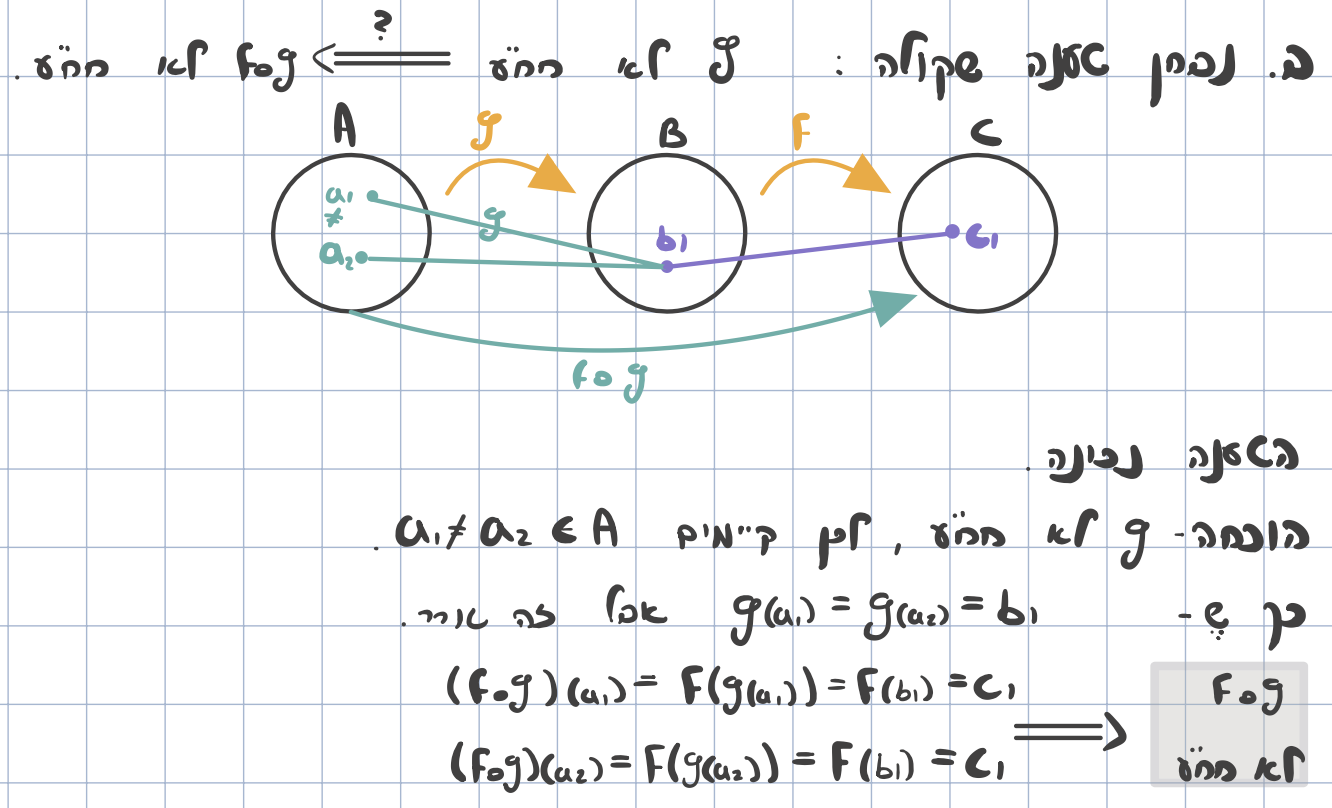 ב. נבחן טענה שקולה : g לא חח"ע ⟸ ? fog לא חח"ע .
A g B F C
a₁
≠
a₂
g
b₁
c₁
fog
הטענה נכונה .
הוכחה - g לא חח"ע , לכן קיימים a₁ ≠ a₂ ∈ A .
כך ש - g(a₁) = g(a₂) = b₁ אבל זה אומר .
(fog)(a₁) = F(g(a₁)) = F(b₁) = c₁
(fog)(a₂) = F(g(a₂)) = F(b₁) = c₁ ⟹
Fog
לא חח"ע